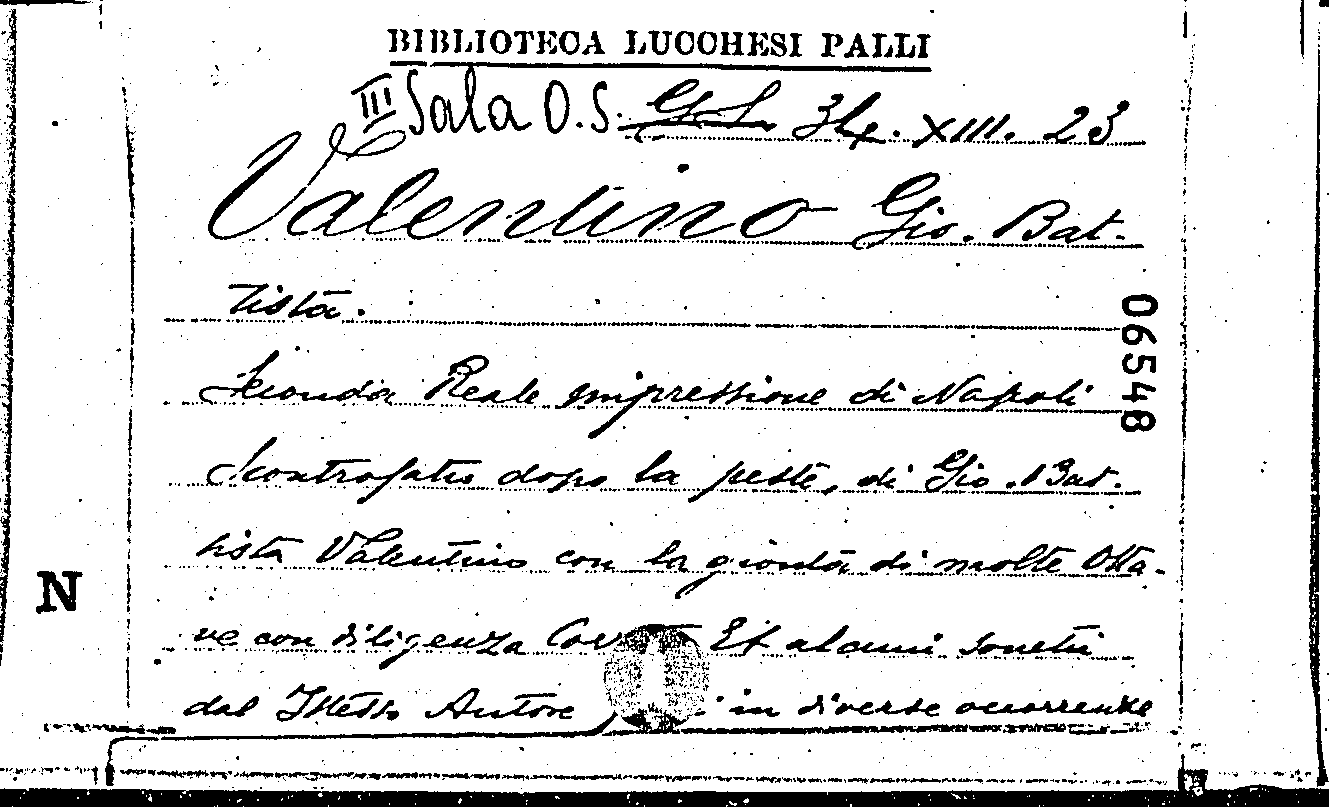 BIBLIOTECA LUCCHESI PALLI
III Sala O.S. G.S. 34. XIII. 23
Valentino Gio. Bat-
tista.
06548
Seconda Reale impressione di Napoli
Scontrafatto dopo la peste, di Gio. Bat-
tista Valentino con la gionta di molte Otta-
N
ve con diligenza Et alcuni sonetti
dal Istesso Autore in diverse occorrenze